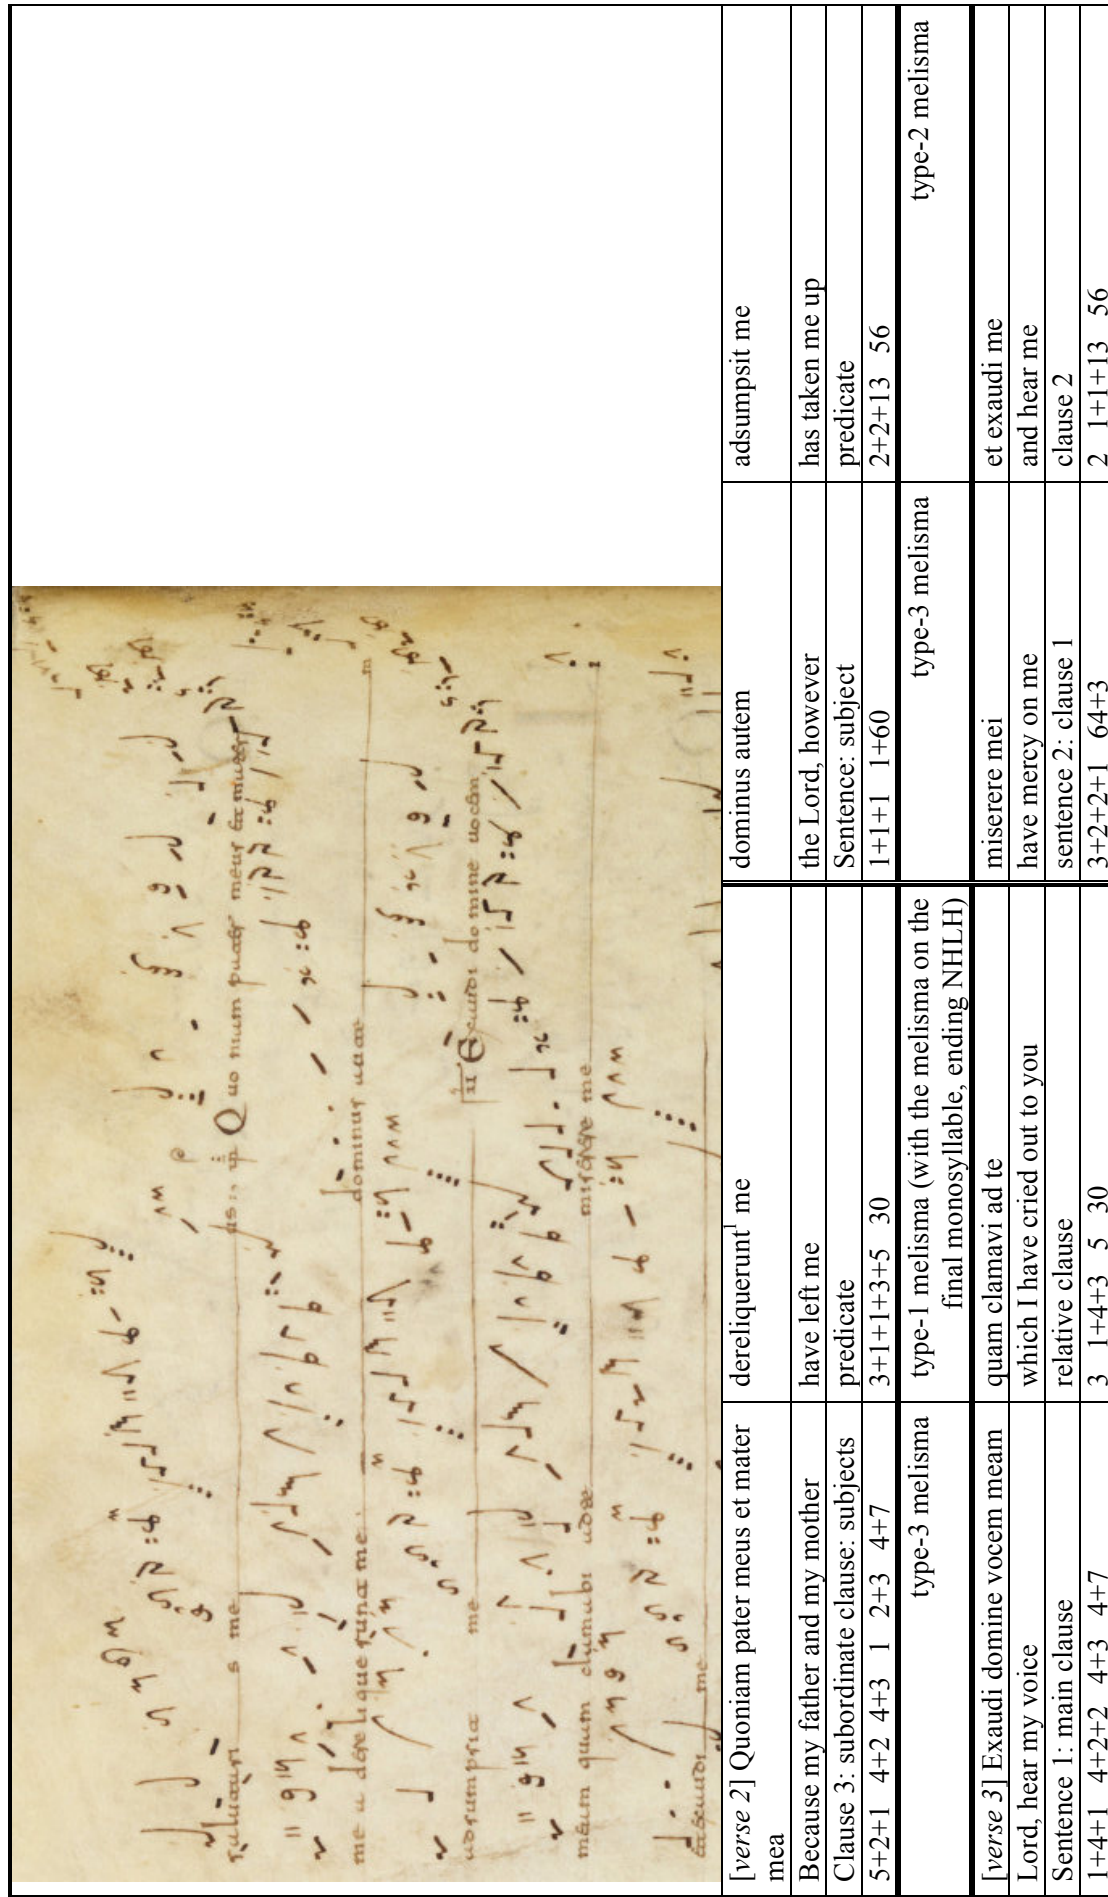 s me us Quo niam pater meus & mater
me a dere li que runt me dominus autem
adsumpsit me III Exaudi domine uocem
meam quam clamabi ad te miserere me
& exaudi me
[verse 2] Quoniam pater meus et mater mea
dereliquerunt¹ me
dominus autem
adsumpsit me
Because my father and my mother
have left me
the Lord, however
has taken me up
Clause 3: subordinate clause: subjects
predicate
Sentence: subject
predicate
5+2+1 4+2 4+3 1 2+3 4+7
3+1+1+3+5 30
1+1+1 1+60
2+2+13 56
type-3 melisma
type-1 melisma (with the melisma on the final monosyllable, ending NHLH)
type-3 melisma
type-2 melisma
[verse 3] Exaudi domine vocem meam
quam clamavi ad te
miserere mei
et exaudi me
Lord, hear my voice
which I have cried out to you
have mercy on me
and hear me
Sentence 1: main clause
relative clause
sentence 2: clause 1
clause 2
1+4+1 4+2+2 4+3 4+7
3 1+4+3 5 30
3+2+2+1 64+3
2 1+1+13 56